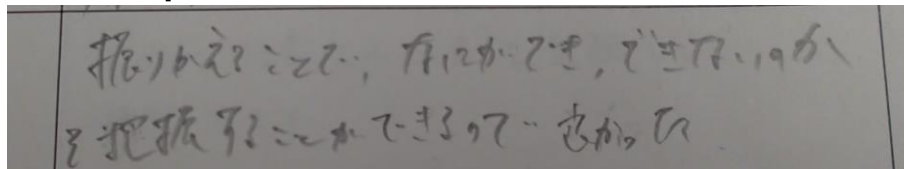 振りかえることで、なにができ、できないのか
を把握することができるので良かった